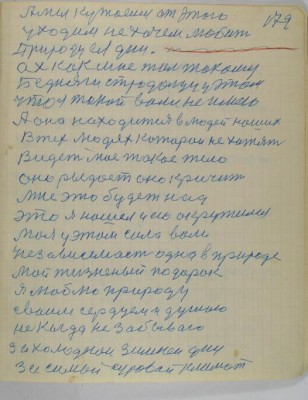 179
А мы кутаемся от этого
уходим не хочем любит
Природы ея дни.
ах как мне тяжело такому
Бедняги страдальцу этом
что я такой воли не имею
А она находится в людей наших
В тех людях которои не хотят
Видеть мое такое тело
оно рыдает оно кричит
мне это будет над
это я нашел и его окружился
моя у этом сила воли
независимость одна в природе
мой жизненый подарок
Я люблю природу
своим сердцем и душою
не когда не забываю
За холодной зимнеи дни
За самой суровой климат